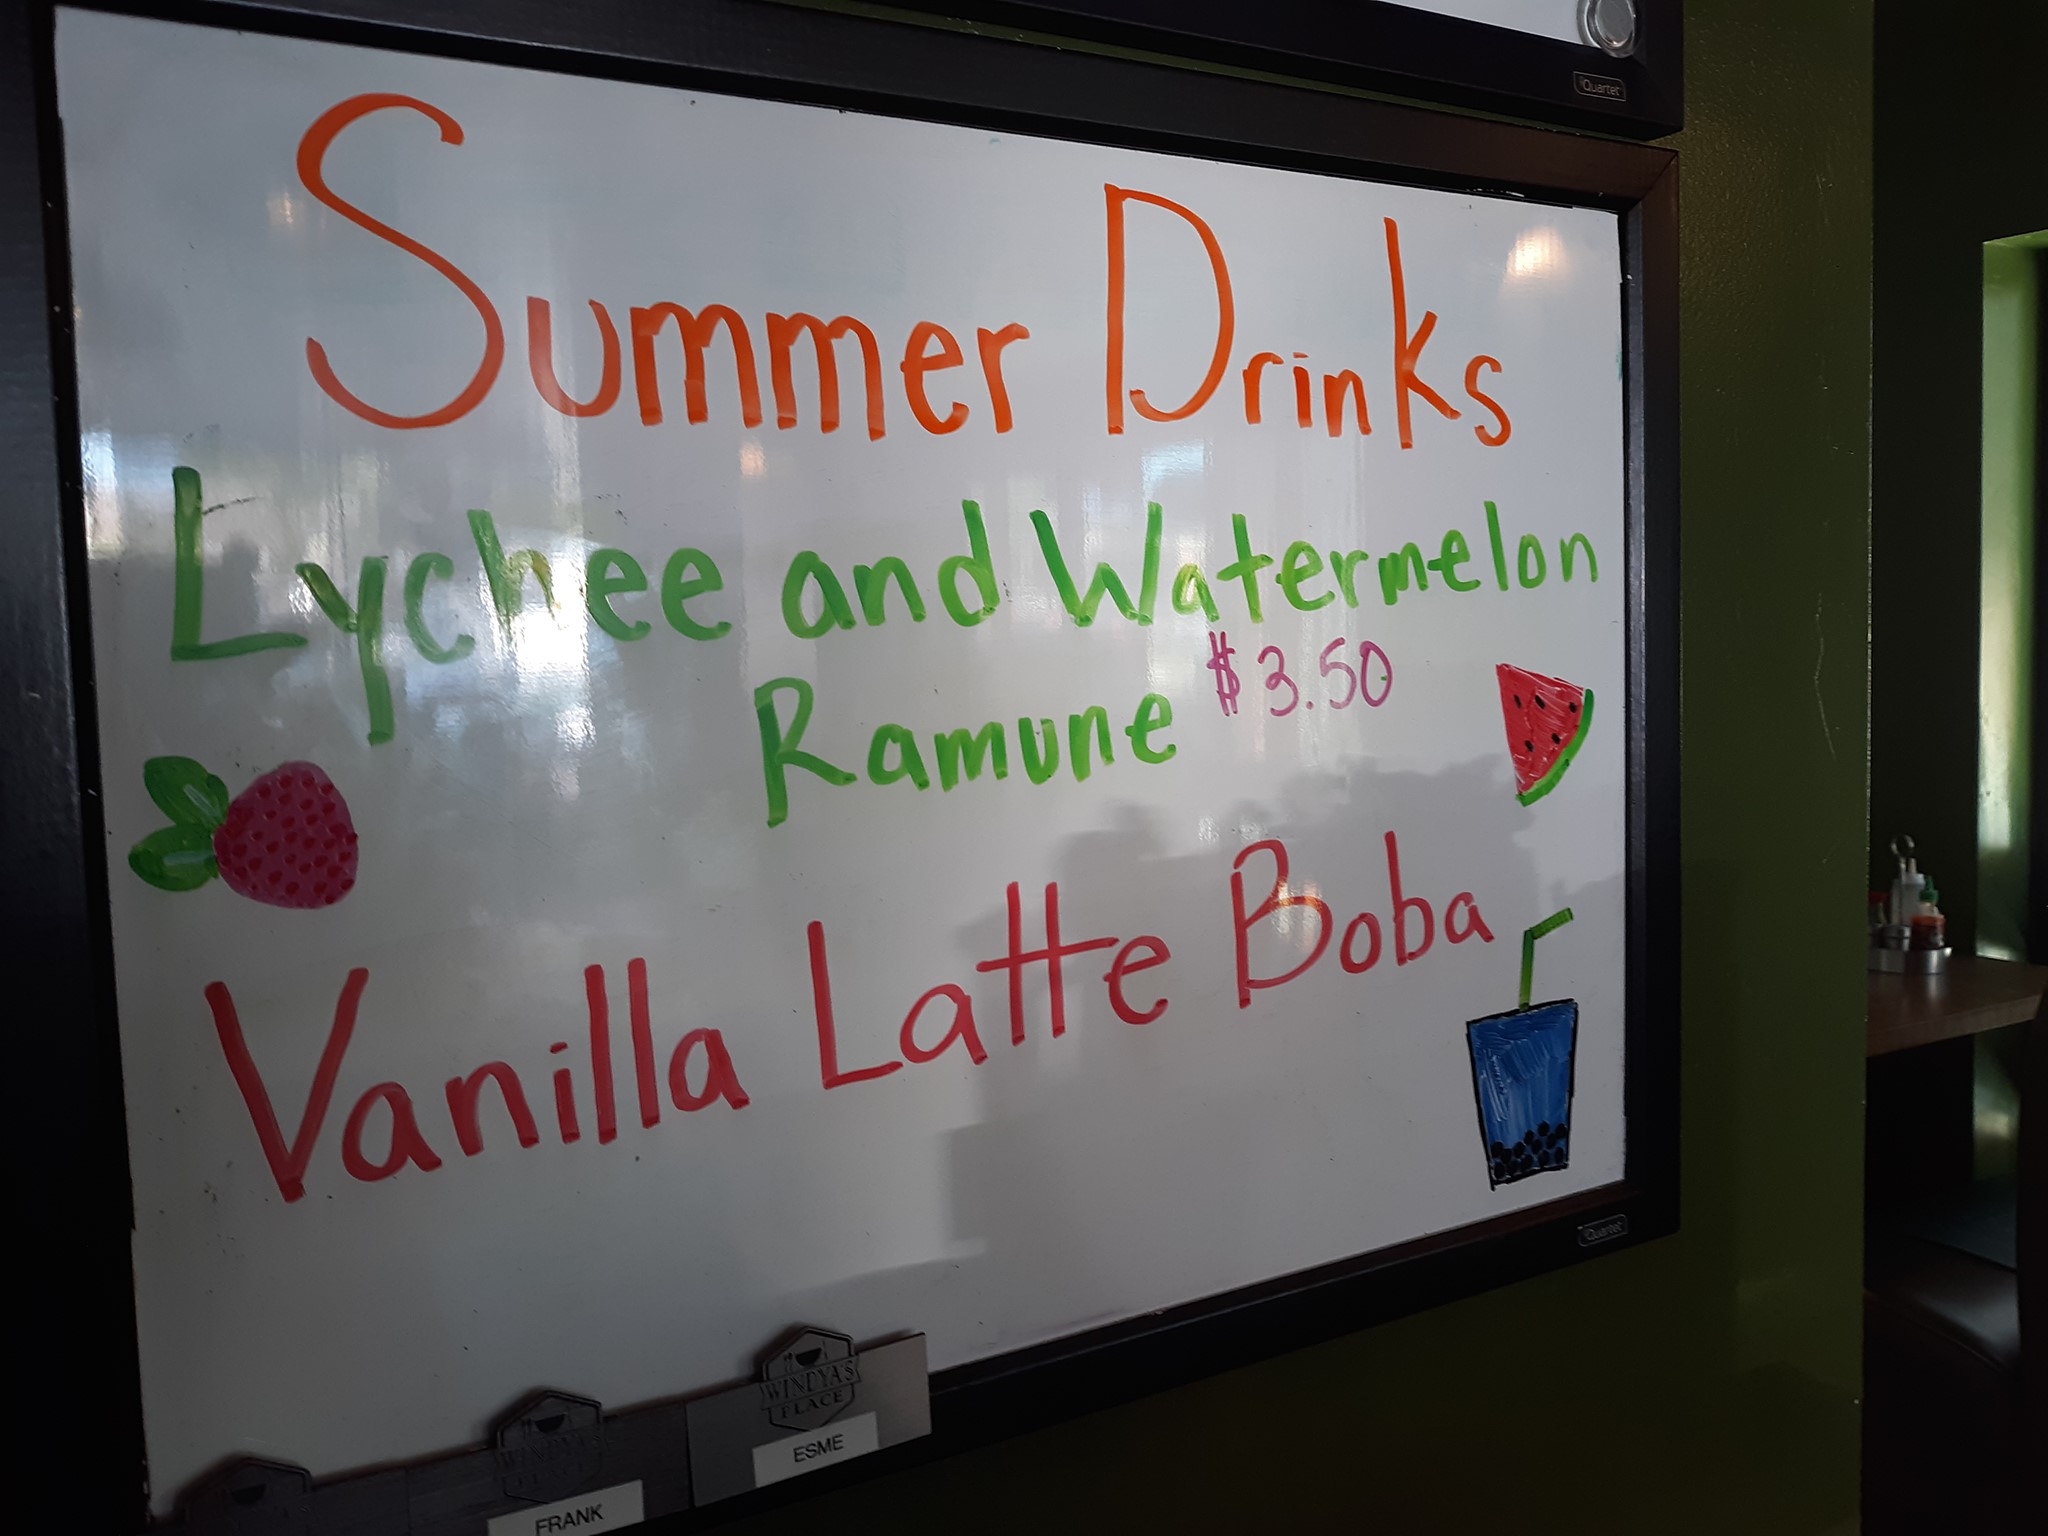 Quartet
Summer Drinks
Lychee and Watermelon
Ramune $3.50
Vanilla Latte Boba
Quartet
WINDYA'S
PLACE
ESME
WINDYA'S
PLACE
FRANK